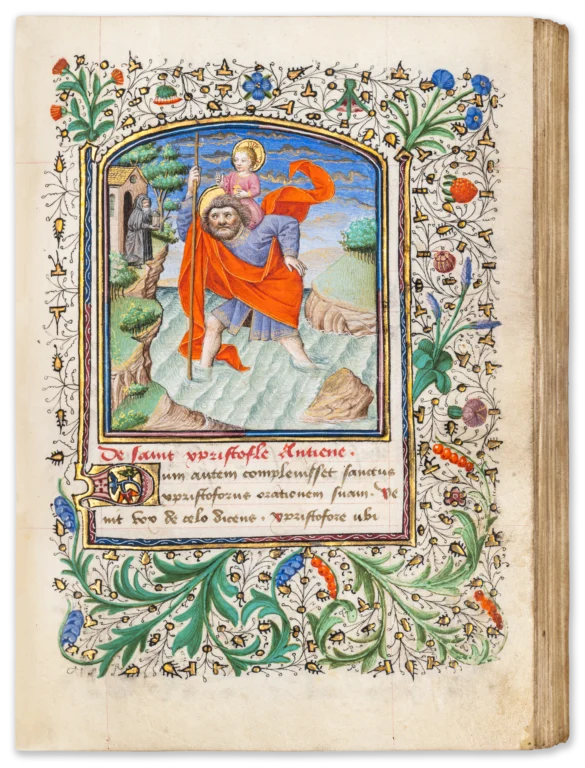 De saint xpristofle Antiene.
Cum autem complevisset sanctus
xpristoforus orationem suam. Ve
nit vox de celo dicens. xpristofore ubi